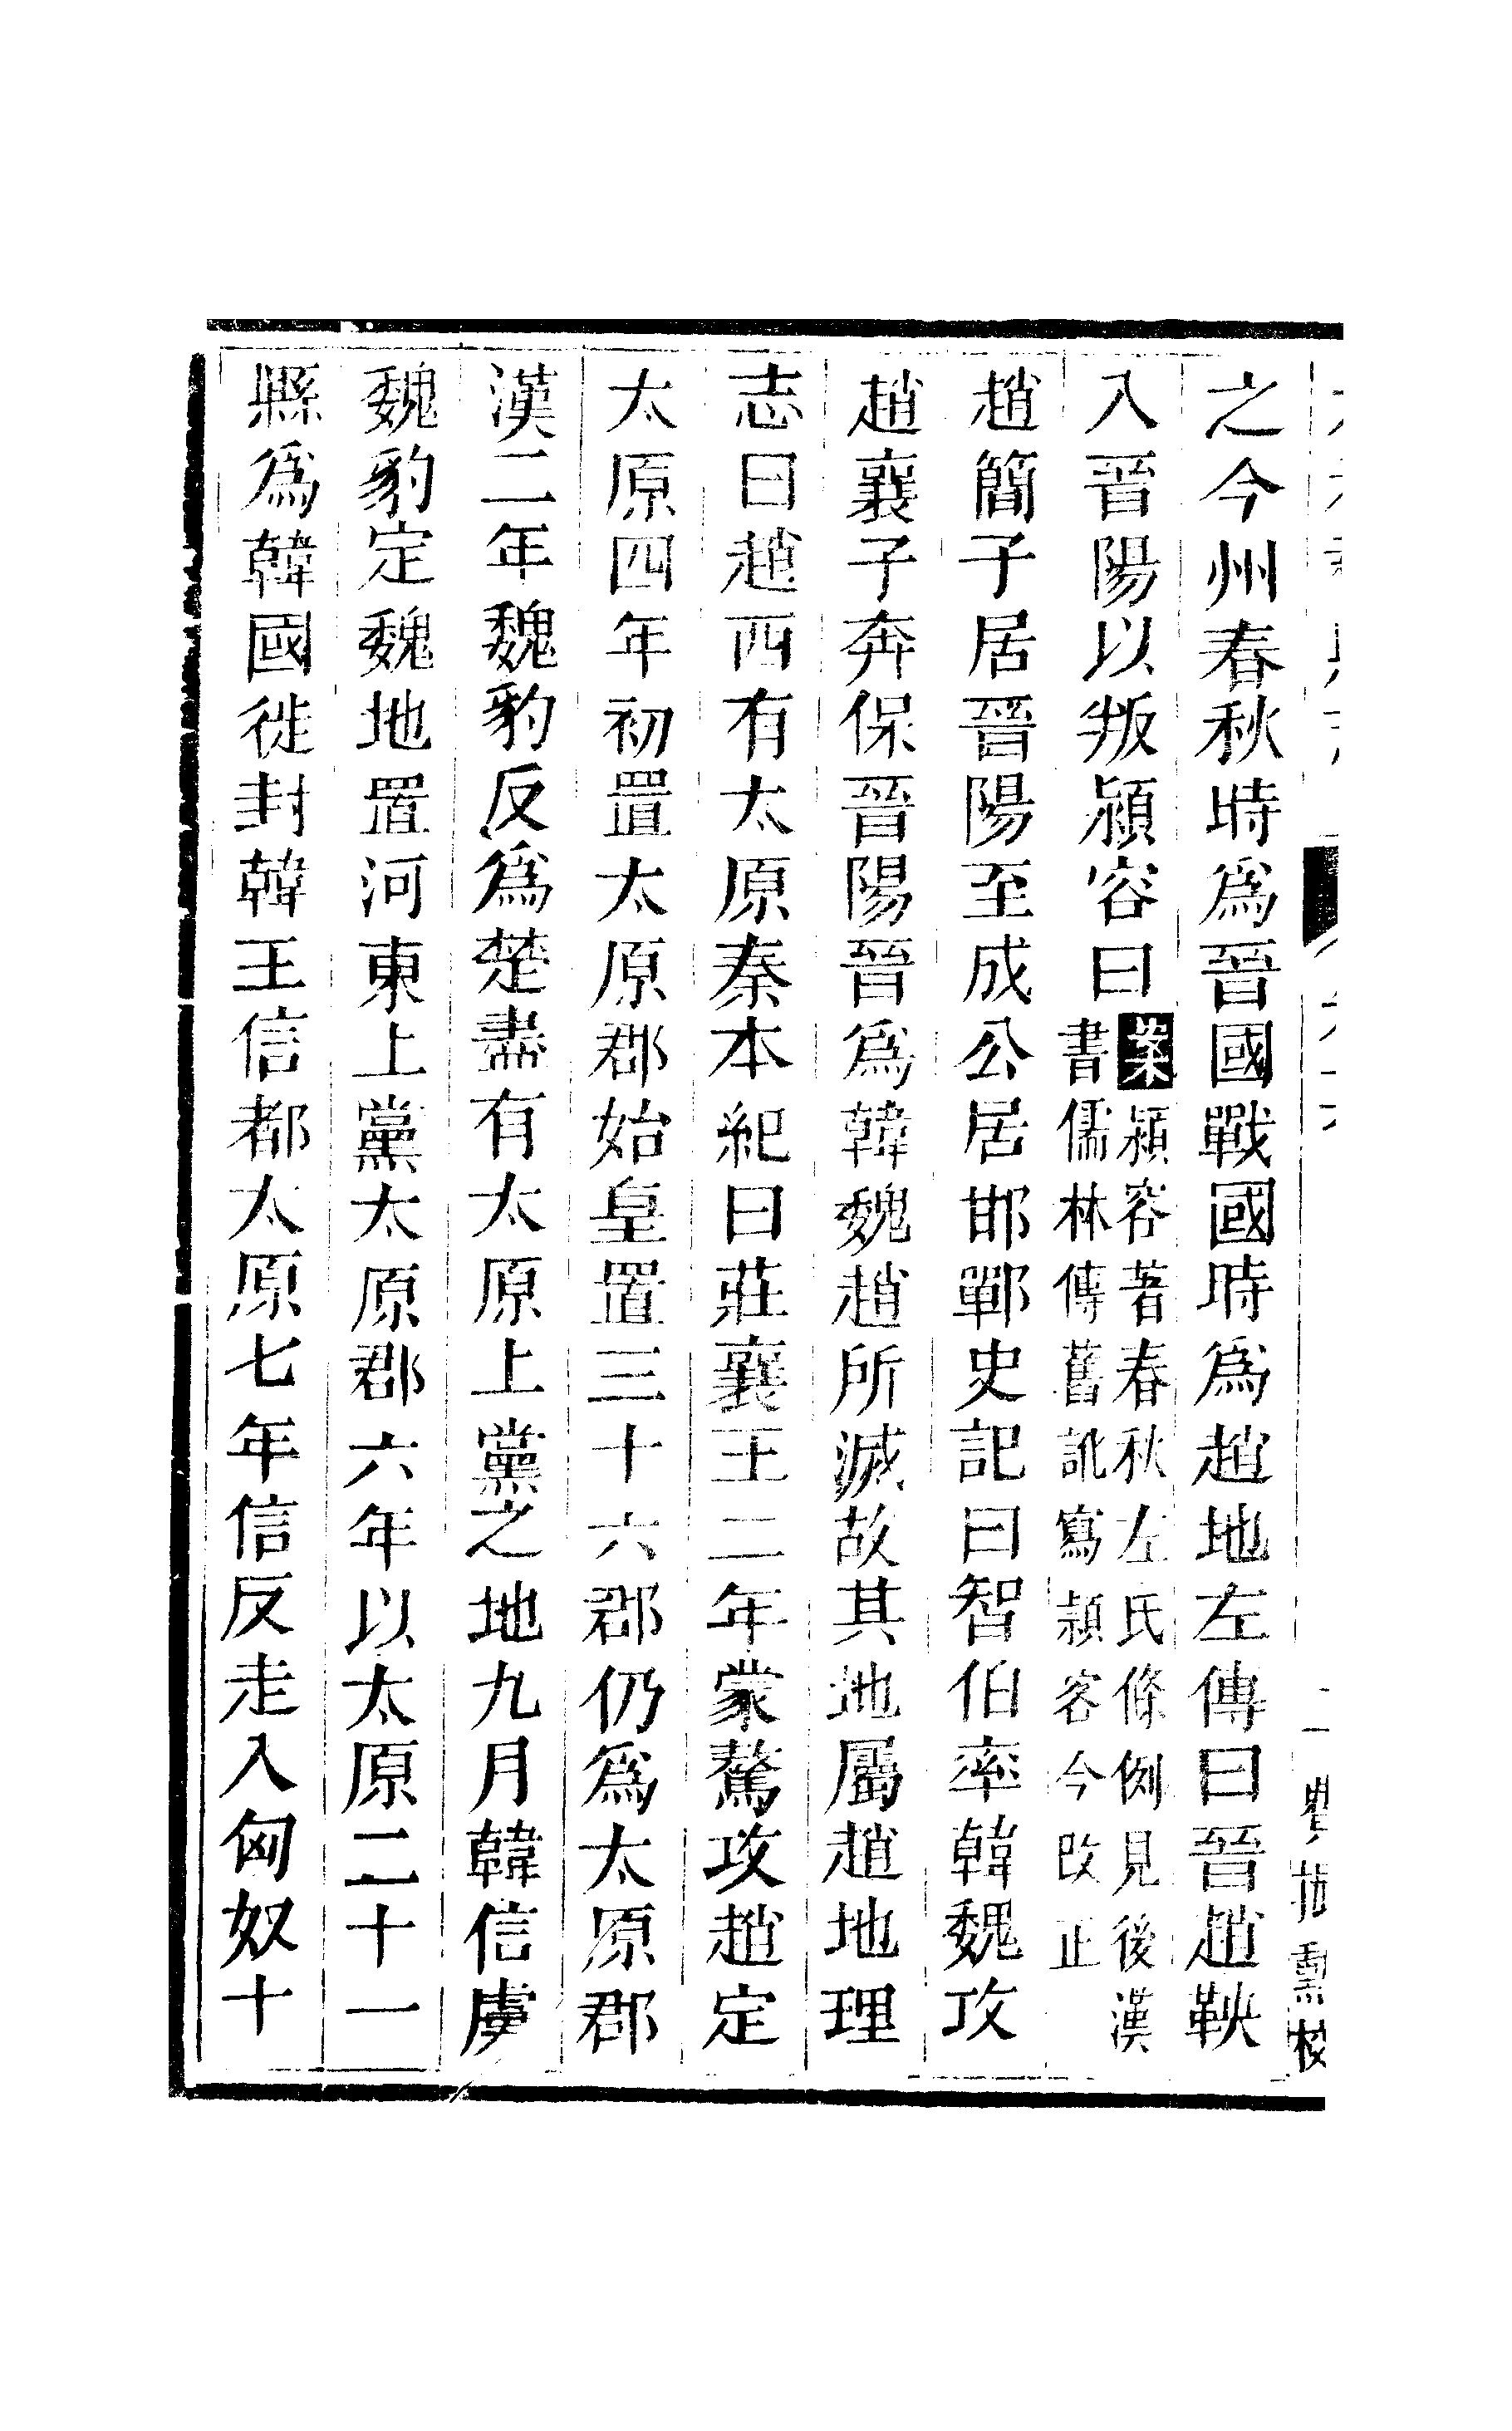 之今州春秋時爲晉國戰國時爲趙地左傳曰晉趙鞅
入晉陽以叛潁容曰
案潁容著春秋左氏條例見後漢
書儒林傳舊訛寫潁客今改正
趙簡子居晉陽至成公居邯鄲史記曰智伯率韓魏攻
趙襄子奔保晉陽晉爲韓魏趙所滅故其地屬趙地理
志曰趙西有太原秦本紀曰莊襄王二年蒙驁攻趙定
太原四年初置太原郡始皇置三十六郡仍爲太原郡
漢二年魏豹反爲楚盡有太原上黨之地九月韓信虜
魏豹定魏地置河東上黨太原郡六年以太原二十一
縣爲韓國徙封韓王信都太原七年信反走入匈奴十